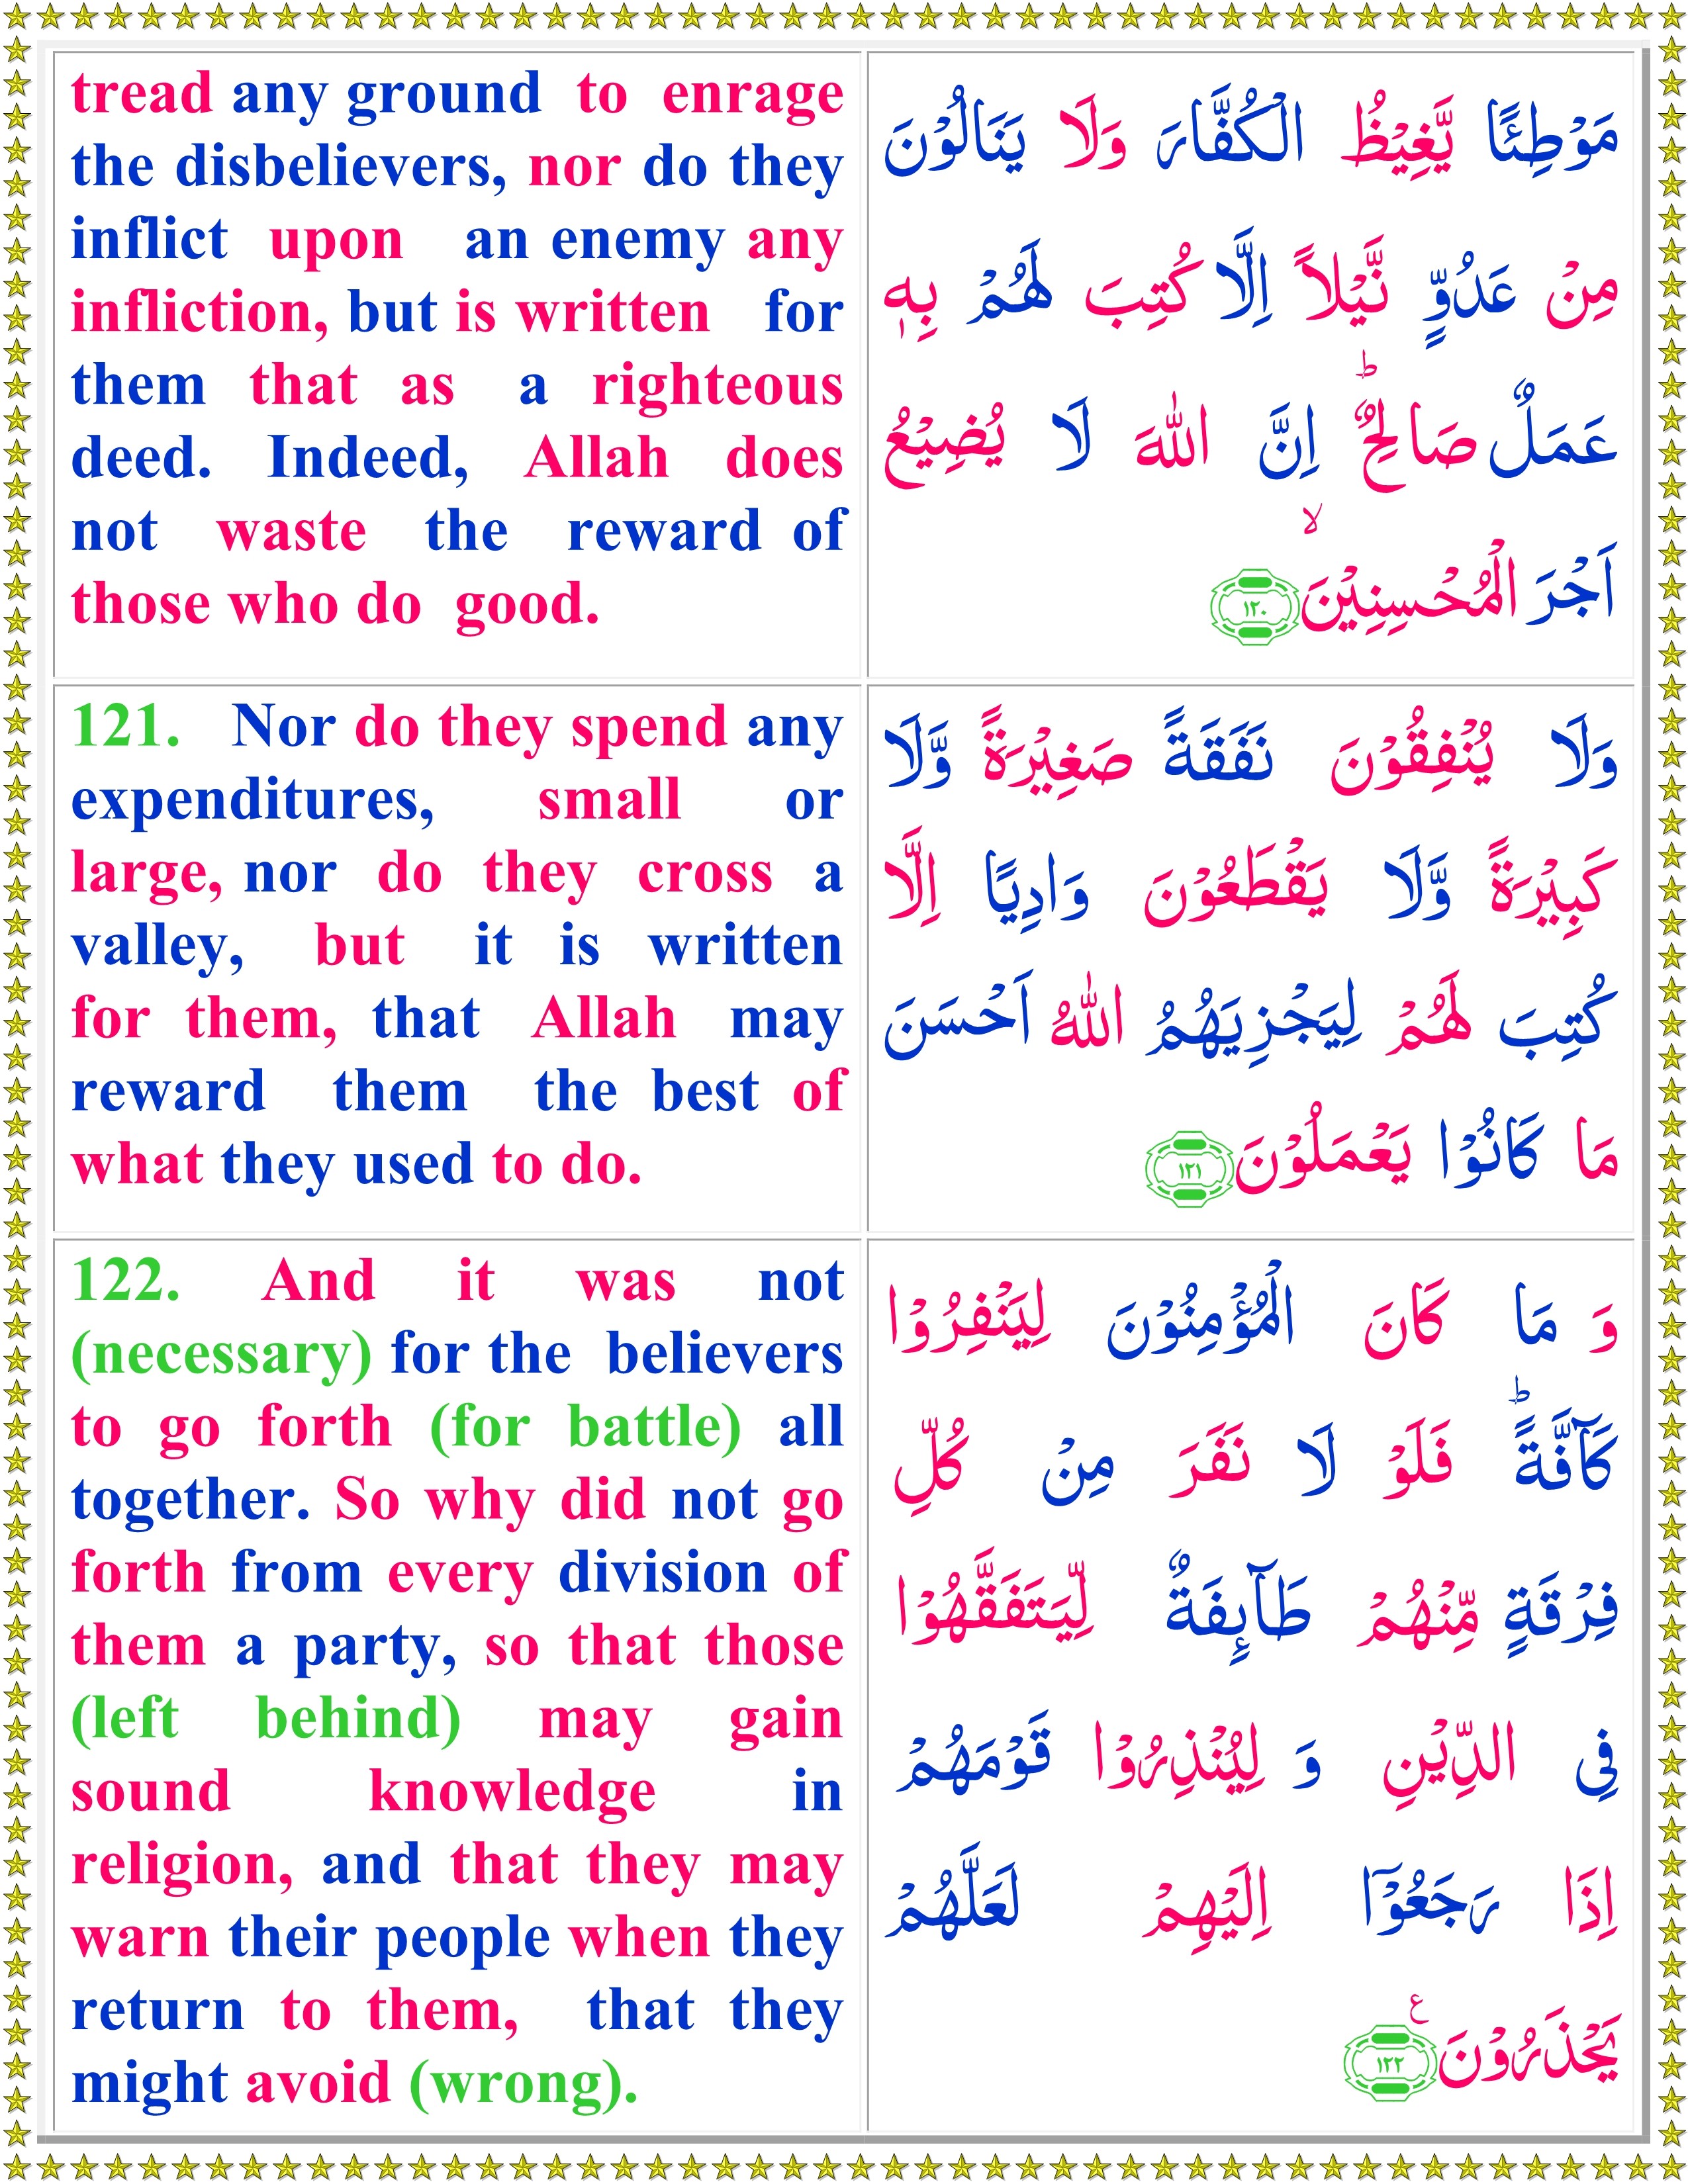 tread any ground to enrage
the disbelievers, nor do they
inflict upon an enemy any
infliction, but is written for
them that as a righteous
deed. Indeed, Allah does
not waste the reward of
those who do good.
مَوْطِئًا يَّغِيْظُ الْكُفَّارَ وَلَا يَنَالُوْنَ
مِنْ عَدُوٍّ نَّيْلاً اِلَّا كُتِبَ لَهُمْ بِهٖ
عَمَلٌ صَالِحٌ ؕ اِنَّ اللّٰهَ لَا يُضِيْعُ
اَجْرَ الْمُحْسِنِيْنَ ۙ ١٢٠
121. Nor do they spend any
expenditures, small or
large, nor do they cross a
valley, but it is written
for them, that Allah may
reward them the best of
what they used to do.
وَلَا يُنْفِقُوْنَ نَفَقَةً صَغِيْرَةً وَّلَا
كَبِيْرَةً وَّلَا يَقْطَعُوْنَ وَادِيًا اِلَّا
كُتِبَ لَهُمْ لِيَجْزِيَهُمُ اللّٰهُ اَحْسَنَ
مَا كَانُوْا يَعْمَلُوْنَ ١٢١
122. And it was not
(necessary) for the believers
to go forth (for battle) all
together. So why did not go
forth from every division of
them a party, so that those
(left behind) may gain
sound knowledge in
religion, and that they may
warn their people when they
return to them, that they
might avoid (wrong).
وَ مَا كَانَ الْمُؤْمِنُوْنَ لِيَنْفِرُوْا
كَآفَّةً ؕ فَلَوْ لَا نَفَرَ مِنْ كُلِّ
فِرْقَةٍ مِّنْهُمْ طَآٮِٕفَةٌ لِّيَتَفَقَّهُوْا
فِى الدِّيْنِ وَ لِيُنْذِرُوْا قَوْمَهُمْ
اِذَا رَجَعُوْۤا اِلَيْهِمْ لَعَلَّهُمْ
يَحْذَرُوْنَ ع ١٢٢